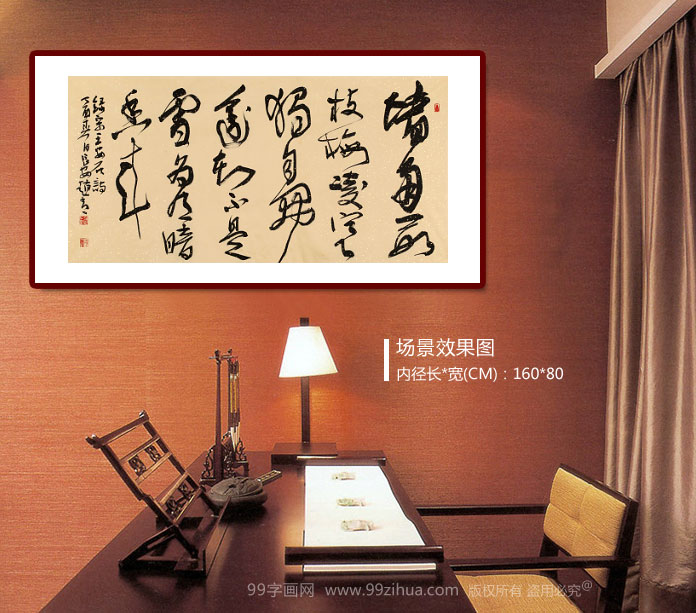 墙角数
枝梅凌寒
獨自開
遥知不是
雪为有暗
香来
録宋王安石詩
丁酉春月長安
场景效果图
内径长*宽(CM)：160*80
99字画网 www.99zihua.com 版权所有 盗用必究@